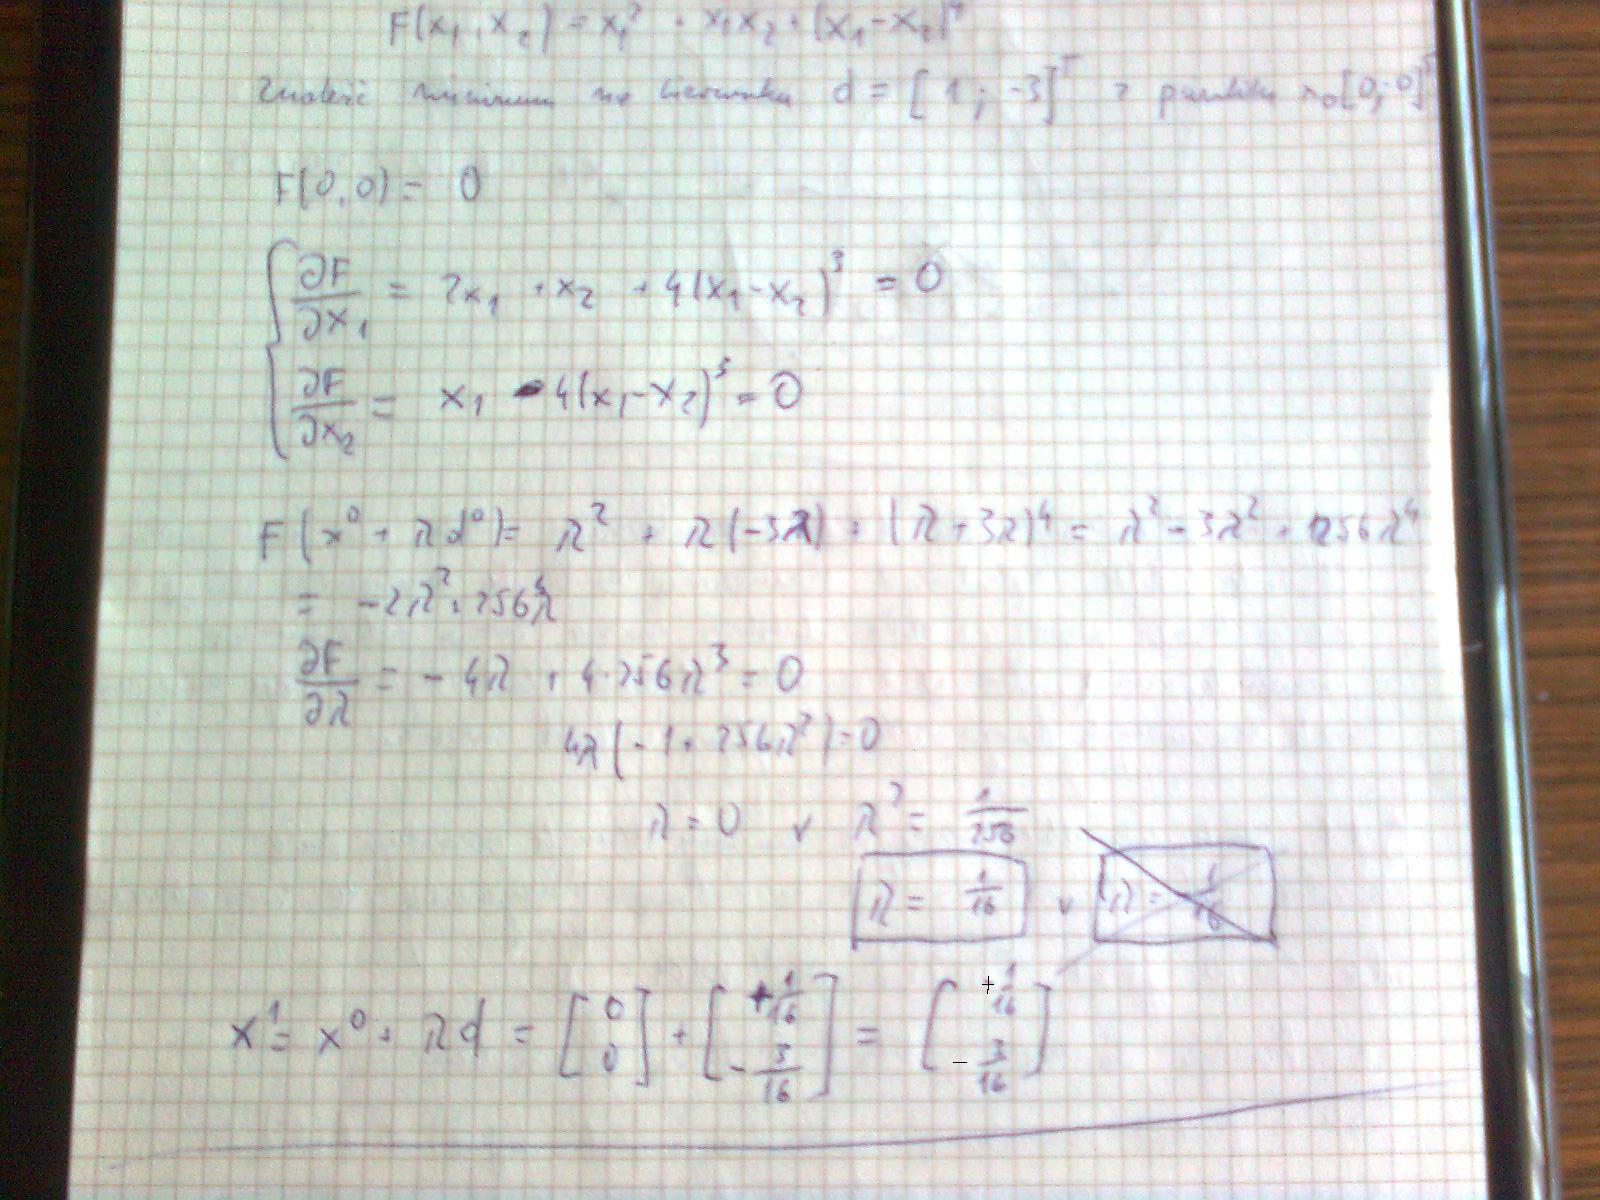 F(x₁, x₂) = x₁² + x₁x₂ + (x₁-x₂)⁴
znaleźć minimum na kierunku d = [1; -3]ᵀ z punktu x₀[0; 0]ᵀ
F(0,0) = 0
∂F/∂x₁ = 2x₁ + x₂ + 4(x₁-x₂)³ = 0
∂F/∂x₂ = x₁ - 4(x₁-x₂)³ = 0
F(x⁰ + λd⁰) = λ² + λ(-3λ) + (λ+3λ)⁴ = λ² - 3λ² + 256λ⁴
= -2λ² + 256λ⁴
∂F/∂λ = -4λ + 4·256λ³ = 0
4λ(-1 + 256λ²) = 0
λ = 0 v λ² = 1/256
λ = 1/16 v λ = -1/16
x¹ = x⁰ + λd = [0 0] + [+1/16 -3/16] = [+1/16 -3/16]